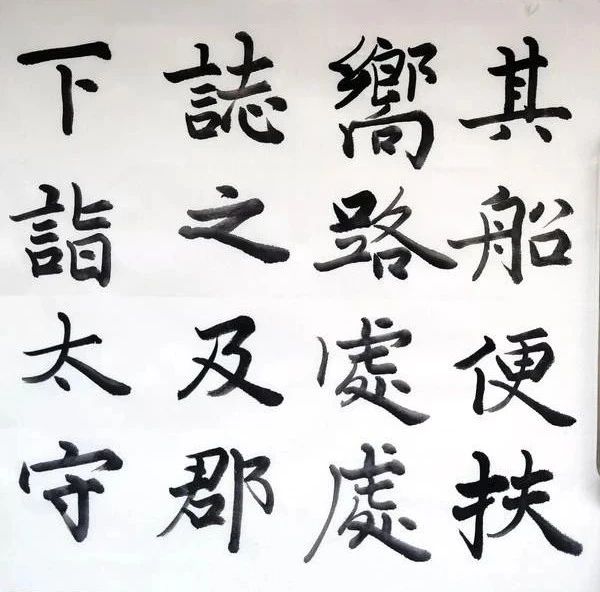 其船便扶
嚮路處處
誌之及郡
下詣太守